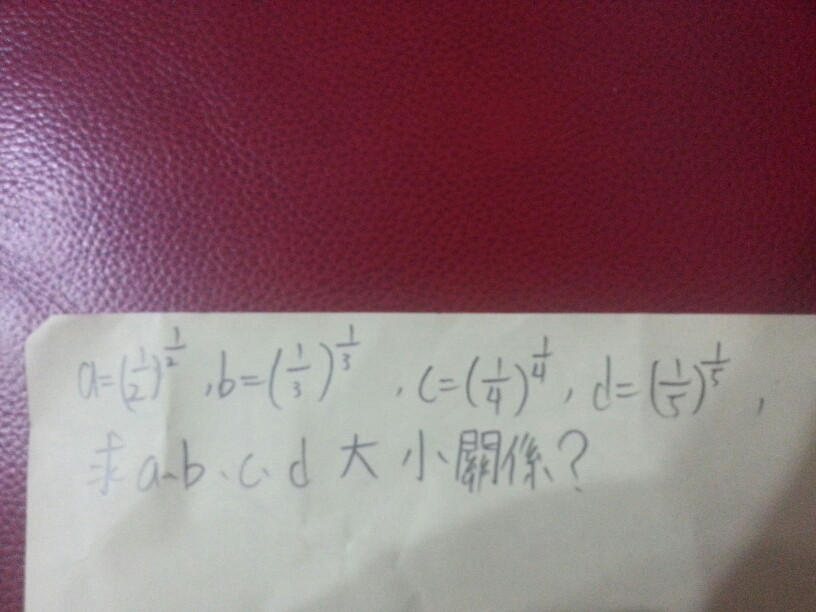 a=(1/2)^{1/2}, b=(1/3)^{1/3}, c=(1/4)^{1/4}, d=(1/5)^{1/5},
求 a、b、c、d 大小關係?